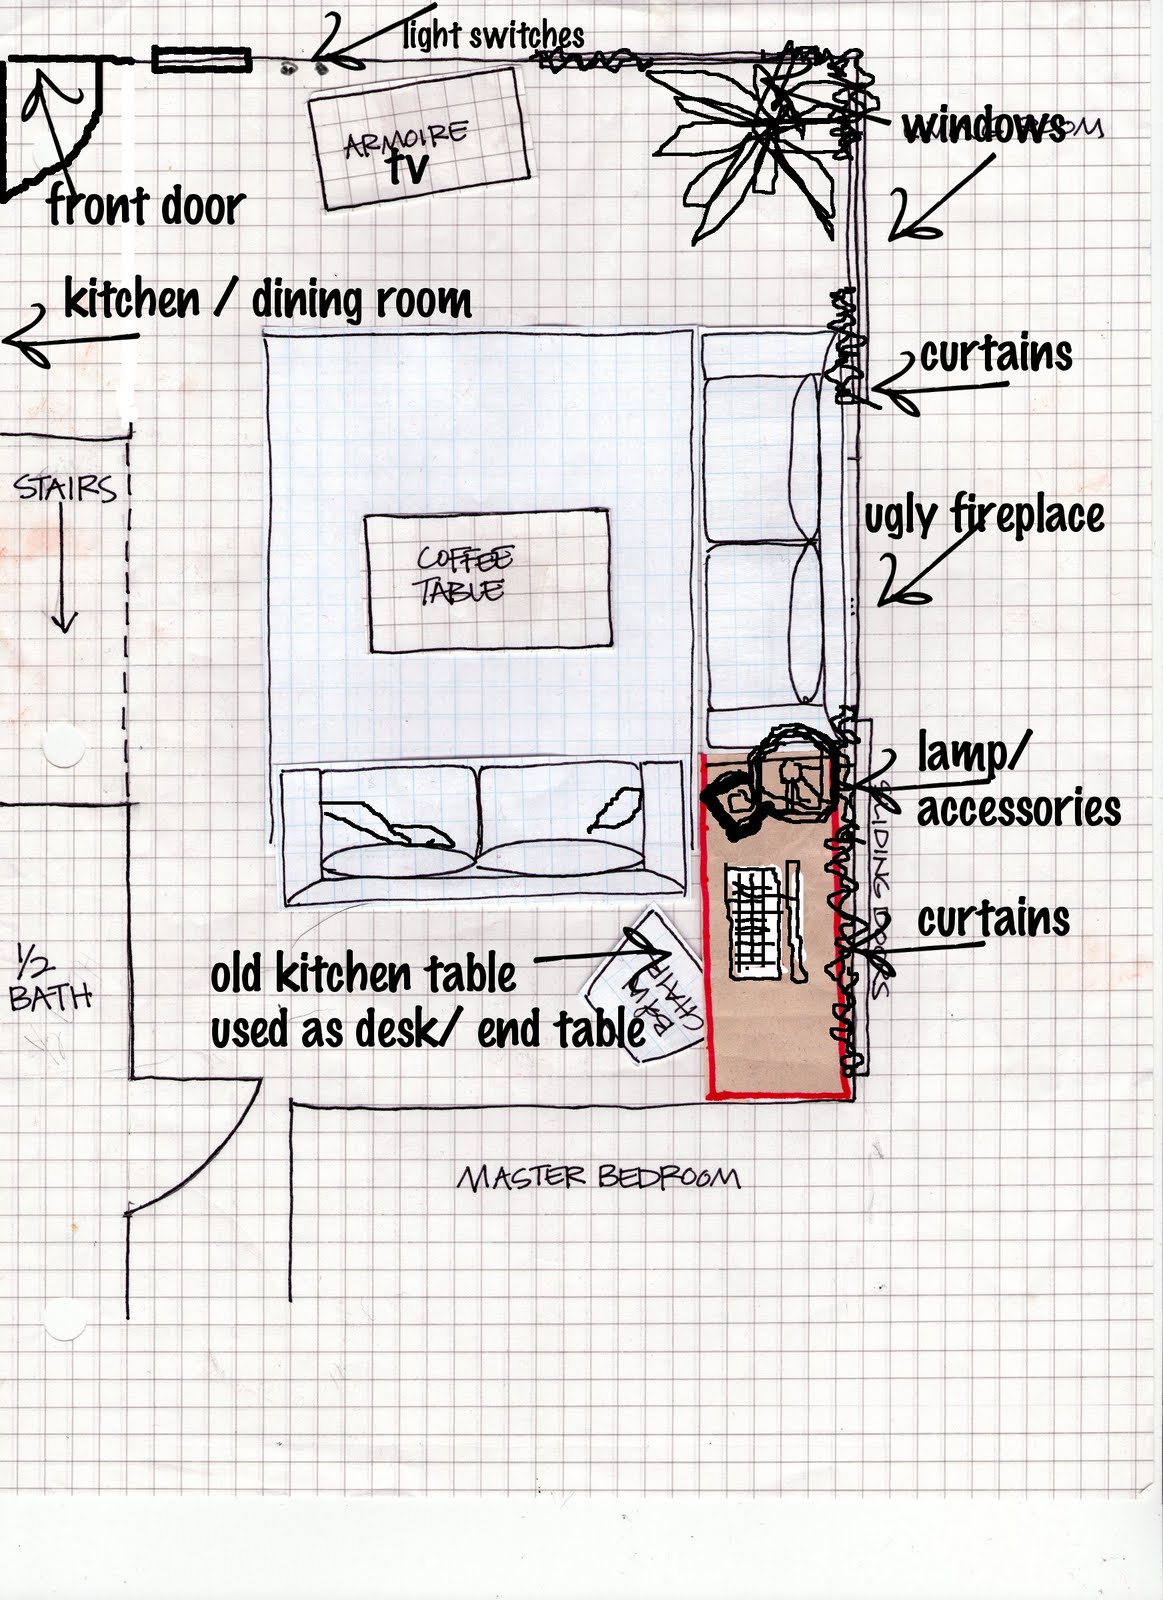 light switches
ARMOIRE
tv
windows
front door
kitchen / dining room
curtains
STAIRS
ugly fireplace
COFFEE
TABLE
lamp/
accessories
SLIDING DOORS
curtains
1/2
BATH
old kitchen table
used as desk/ end table
B&W
CHAIR
MASTER BEDROOM